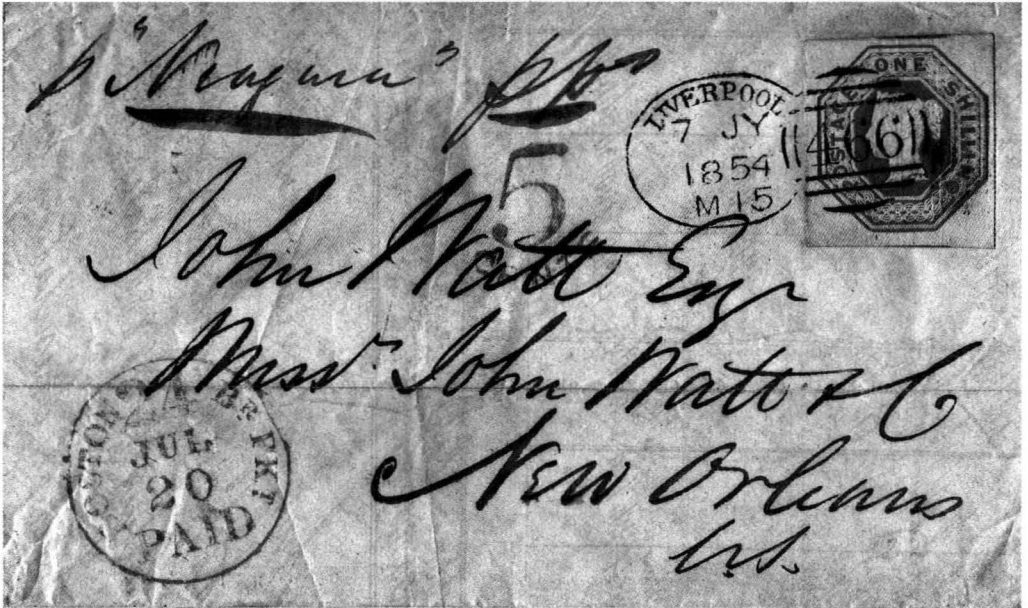 p "Niagara" ppd
LIVERPOOL
7 JY
1854
M 15
466
POSTAGE ONE SHILLING
5
CENTS
John Watt Esqr
Messrs. John Watt & Co
New Orleans
U.S.
BOSTON Br. PKT.
24
JUL
20
PAID